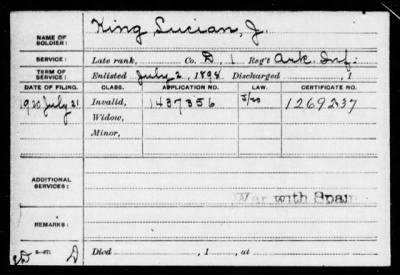 NAME OF SOLDIER: King, Lucian, J.
SERVICE: Late rank, Co. D, 1 Reg't Ark. Inf:
TERM OF SERVICE: Enlisted July 2, 1898, Discharged , 1
DATE OF FILING. CLASS. APPLICATION NO. LAW. CERTIFICATE NO.
1920 July 21 Invalid, 1437356 5/20 1269237
Widow,
Minor,
ADDITIONAL SERVICES:
War with Spain
REMARKS:
Died , 1 , at